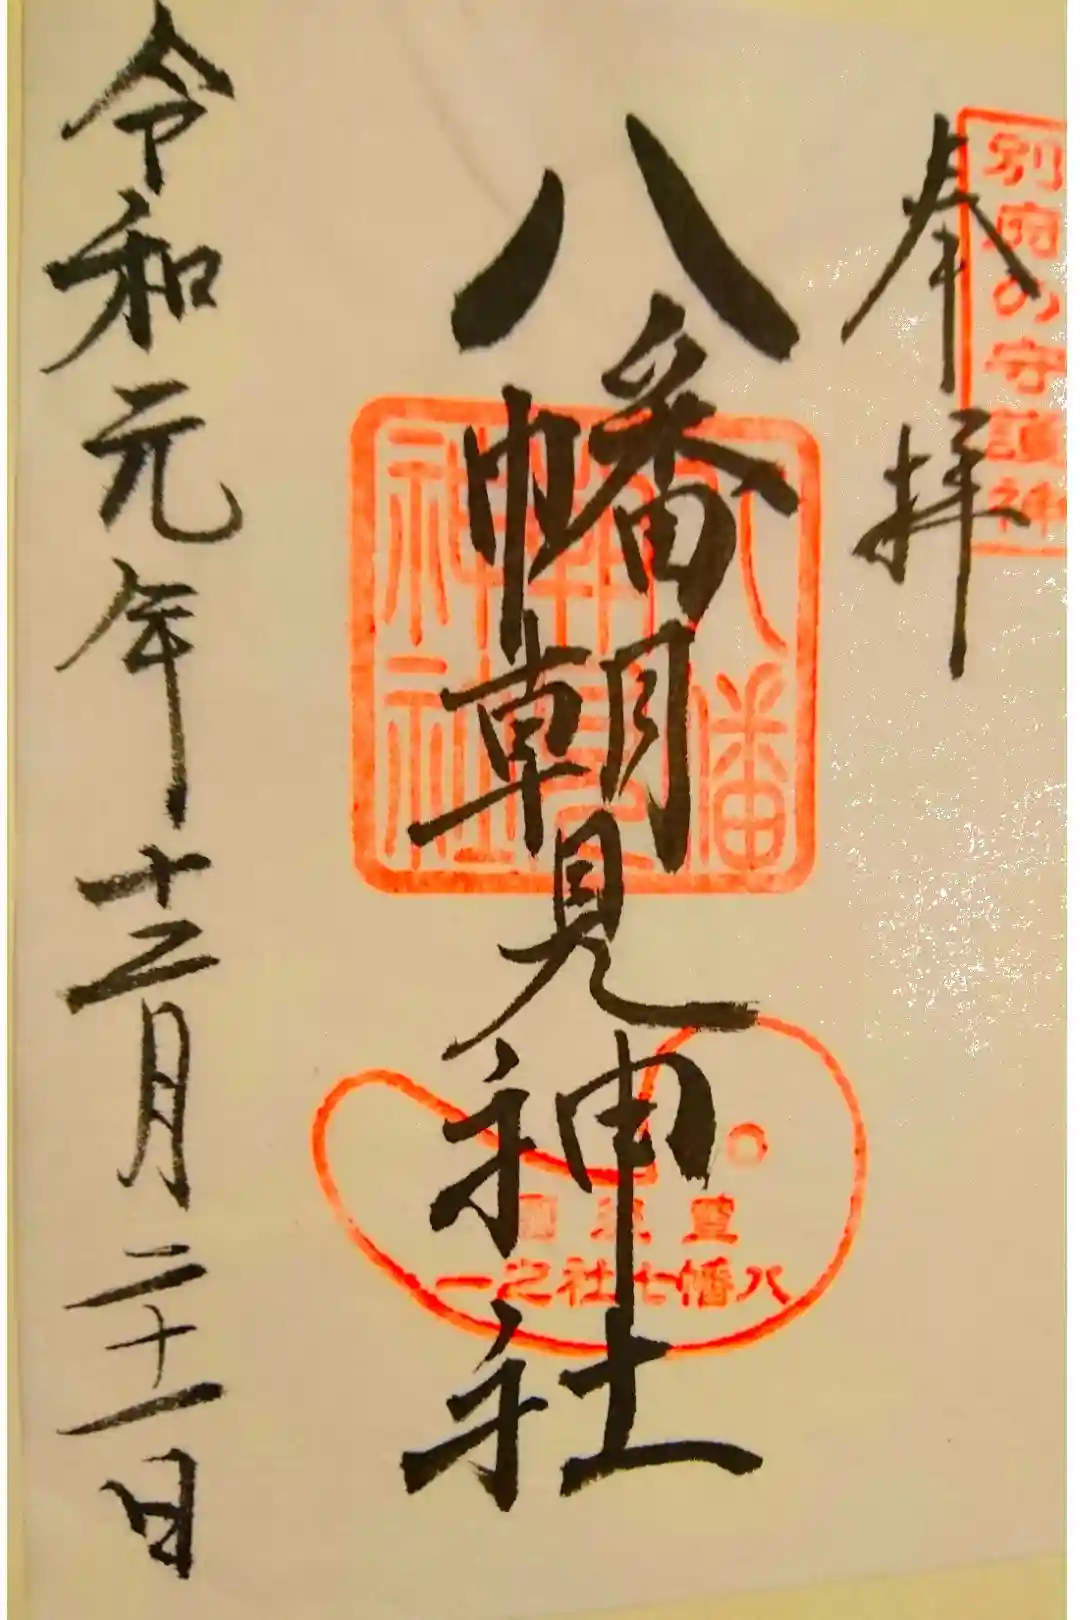 別府の守護神
奉拝
八幡朝見神社
八幡
朝見
神社
豊後國
八幡七社之一
令和元年十二月二十一日